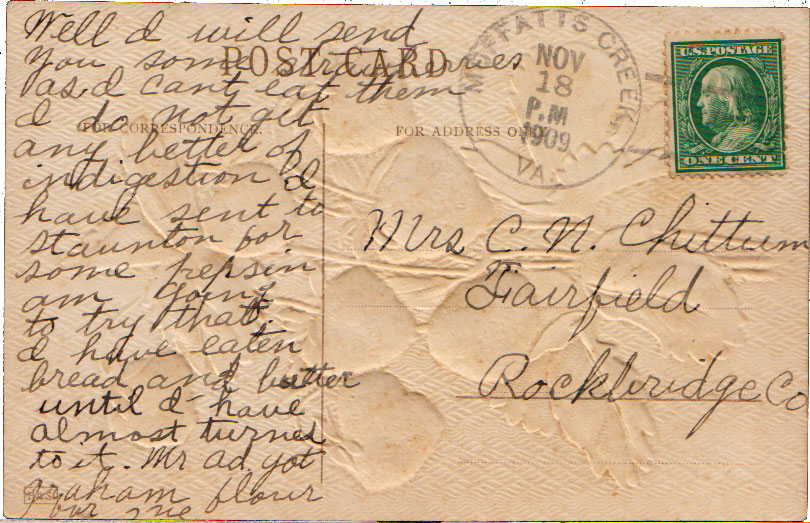 Well I will send
you some strawberries
as I cant eat them
I do not get
any better of
indigestion I
have sent to
staunton for
some pepsin
am going
to try that.
I have eaten
bread and butter
until I have
almost turned
to it. Mr ad got
graham flour
for me
POST CARD
FOR CORRESPONDENCE.
FOR ADDRESS ONLY
MOFFATTS CREEK
NOV
18
P.M
1909
VA.
U.S. POSTAGE
ONE CENT
Mrs C. N. Chittum
Fairfield
Rockbridge Co